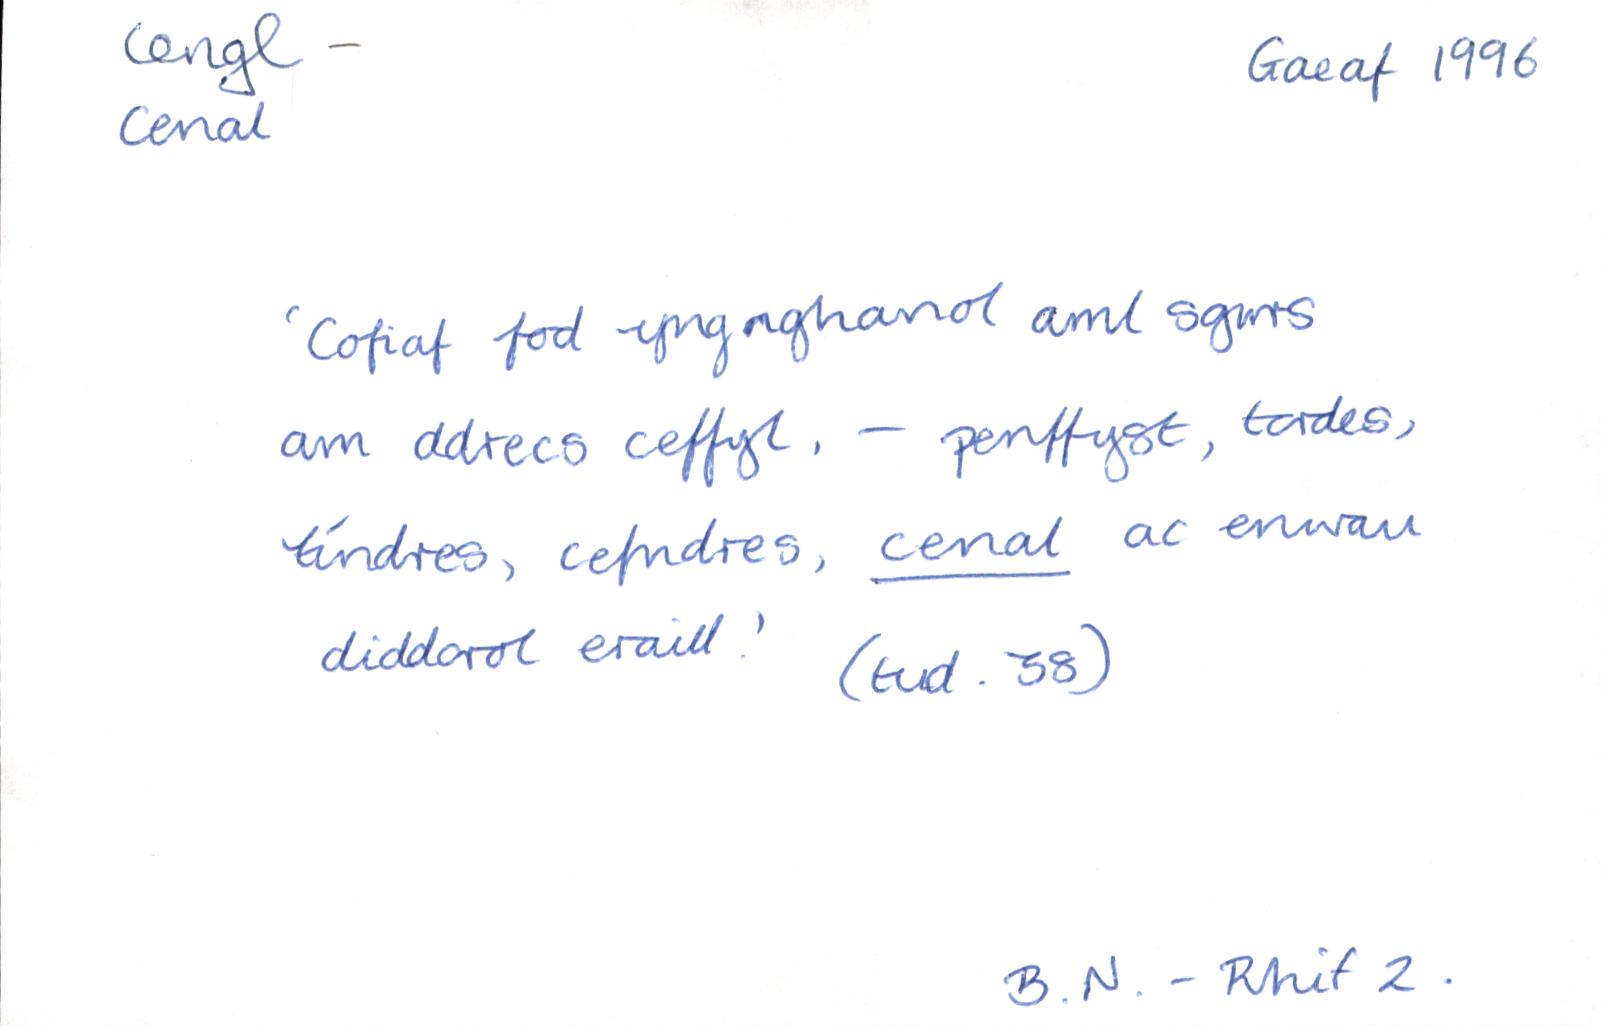 Cengl -
Cenal
Gaeaf 1996
'Cofiaf fod yngnghanol aml sgwrs
am ddrecs ceffyl, - penffyst, tordes,
tindres, cefndres, cenal ac enwau
diddorol eraill.'
(tud. 38)
B.N. - Rhif 2.